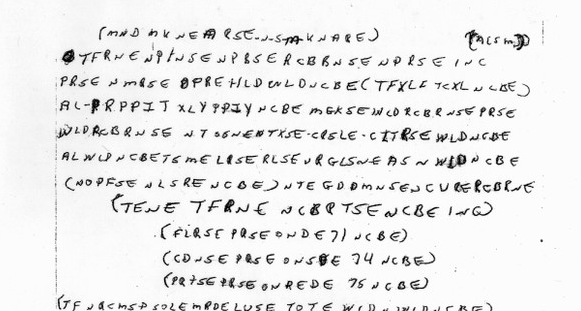 (MND MKNEARSE-N-S-M-KNARE) (ACSM)
TFRNENPINSENPBSERCBRNSENPRSEINC
PRSENMRSEOPREHLDWLDNCBE(TFXLFTCXLNCBE)
AL-PRPPITXLYPPIYNCBEMGKSEWLDRCBRNSEPRSE
WLDRCBRNSENTOSNENTXSE-CRSLE-CITRSEWLDNCBE
ALWLDNCBETSMELRSERLSEURGLSNEASNWLDNCBE
(NOPFSENLSRENCBE)NTEGDDMNSENCURERCBRNE
(TENETFRNENCBRTSENCBEING)
(FLRSEPRSEONDE71NCBE)
(CDNSEPRSEONSDE74NCBE)
(PRTSEPRSEONREDE75NCBE)
(TFNRCMSPSOLEMRDELUSETOTEWLDNWLDNCBE)